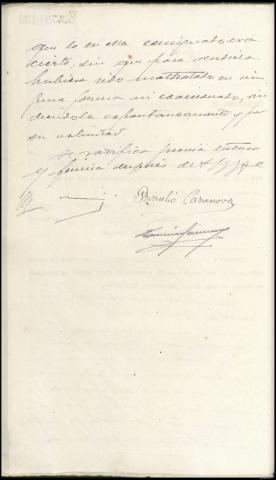 que lo en ella consignado, era
cierto, sin que para rendirla
hubiera sido maltratado en nin
guna forma ni coaccionado, rin
diendola espontaneamente y por
su voluntad.
Se ratifica previa lectura
y firma después de
Braulio Casanova